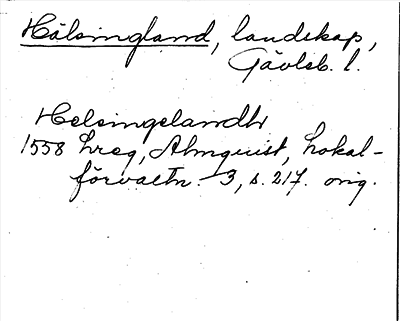 Hälsingland, landskap,
Gävleb. l.
Helsingelandh
1558 hreg, Almquist, Lokal-
förvaltn. 3, s. 217. orig.